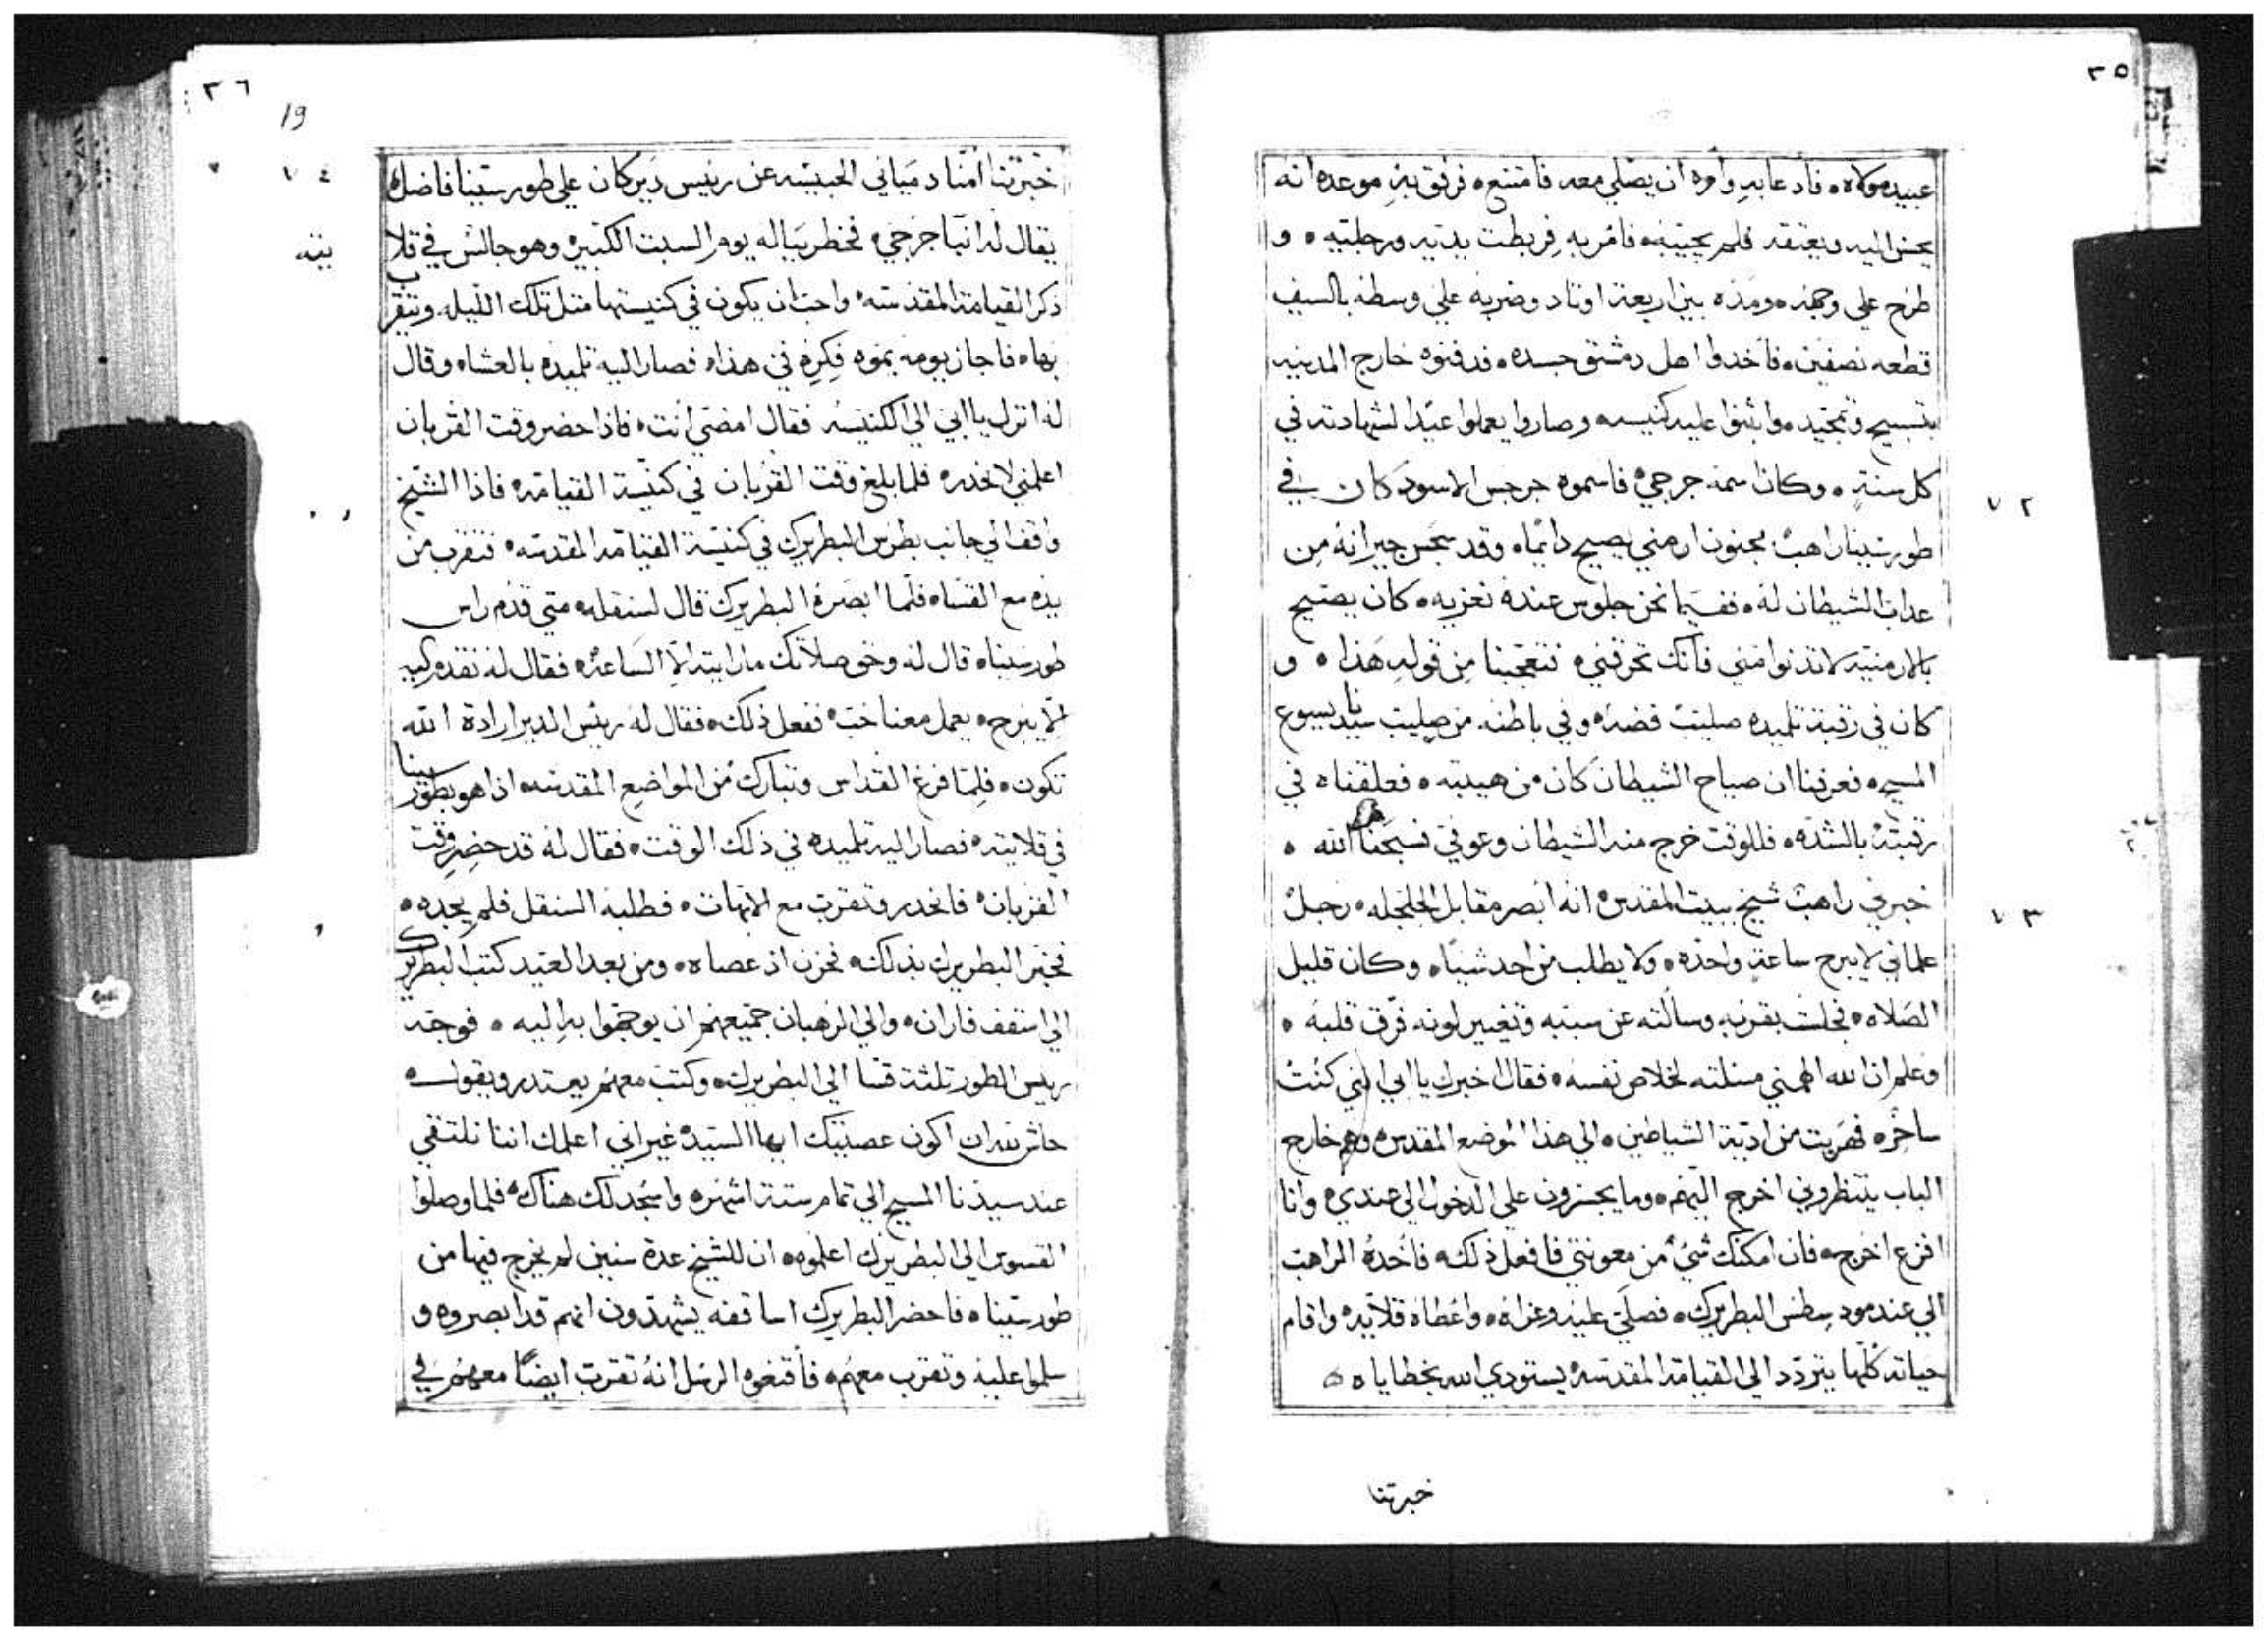 ٣٥
عبيده مولاه ه فادعا به وامره ان يصلي معه فامتنع ه فرفق به موعده انه
يحسن اليه ويعتقه فلم يجيبه ه فامر به فربطت يديه ورجليه ه و
طرح علي وجهه ه ومده بين اربعة اوتاد وضربه علي وسطه بالسيف
قطعه نصفين ه فاخدوا اهل دمشق جسده ه فدفنوه خارج المدينه
بتسبيح وتمجيد ه وابنوا عليه كنيسه وصاروا يعملوا عيدا لشهادته في
كل سنة ه وكان اسمه جرجي ه فاسموه جرجس الاسود كان في
٧٢
طور سينا راهب مجنون ارمني يصيح دايما ه وقد سجس جيرانه من
عداب الشيطان له ه ففيما نحن جلوس عنده نعزيه ه كان يصيح
بالارمنيه لا تدنوا مني فانك تحرقني ه فتعجبنا من قوله هذا ه و
كان في رقبة تلميده صليب فضه ه وفي باطنه من صليب سيدنا يسوع
المسيح ه فعرفنا ان صياح الشيطان كان من هيبته ه فعلقناه في
رقبته بالشده ه فللوقت خرج منه الشيطان وعوفي فسبحنا الله ه
٧٣
خبرني راهب شيخ ببيت المقدس ه انه ابصر مقابل الجلجله ه رجل
علماني لا يبرح ساعة واحده ه ولا يطلب من احد شيا ه وكان قليل
الصلاه ه فجلست بقربه وسالته عن سببه وتغيير لونه فرق قلبه ه
وعلم ان الله الهمني مسلته لخلاص نفسه ه فقال اخبرك يا ابي انني كنت
ساحر ه فهربت من ادية الشياطين ه الي هذا الموضع المقدس ه وهم خارج
الباب ينتظروني اخرج اليهم ه وما يجسرون علي الدخول الي عندي ه وانا
افزع اخرج ه فان امكنك شي من معونتي فافعل ذلك ه فاخده الراهب
الي عند مودسطس البطريرك ه فصلي عليه وعزاه ه واعطاه قلايه ه واقام
حياته كلها يتردد الي القيامه المقدسه ه يستودي الله بخطاياه ه
خبرتنا
٣٦
19
٧٤
خبرتنا امنا دمياني الحبيسه عن رييس دير كان علي طور سينا فاضل ه
يقال له انبا جرجي ه فخطر بباله يوم السبت الكبير ه وهو جالس في قلا
يته
ذكر القيامه المقدسه ه واحب ان يكون في كنيستها متل تلك الليله ه وتقرب
بها ه فاجاز يومه بموه فكره في هذا ه فصار اليه تلميده بالعشاء وقال
له انزل يا ابي الي الكنيسه فقال امضي انت ه فاذا حضر وقت القربان
اعلمني لانحدر ه فلما بلغ وقت القربان في كنيسة القيامه ه فاذا الشيخ
واقف الي جانب بطرس البطريرك في كنيسة القيامه المقدسه ه فتقرب من
يده مع القسا ه فلما ابصره البطريرك قال لسنقله ه متي قدم راس
طور سينا ه قال له وحق صلاتك ما رايته الا الساعه ه فقال له تقدم اليه
لا يبرح ه يعمل معنا حب ه ففعل ذلك ه فقال له رييس الدير ارادة الله
تكون ه فلما فرغ القداس وتبارك من المواضع المقدسه ه اذا هو بطور سينا
في قلايته ه فصار اليه تلميده في ذلك الوقت ه فقال له قد حضر وقت
القربان ه فانحدر وتقرب مع الابهات ه فطلبه السنقل فلم يجده ه
فخبر البطريرك بذلك ه فحزن اذ عصاه ه ومن بعد العيد كتب البطريرك
الي اسقف فاران ه والي الرهبان جميعهم ان يوجهوا به اليه ه فوجه
رييس الطور ثلثة قسا الي البطريرك ه وكتب معهم يعتدر ويقول ه
حاش لله ان اكون عصيتك ايها السيد ه غير اني اعلمك اننا نلتقي
عند سيدنا المسيح الي تمام ستة اشهر ه واسجد لك هناك ه فلما وصلوا
القسوس الي البطريرك اعلموه ه ان للشيخ عدة سنين لم يخرج فيها من
طور سينا ه فاحضر البطريرك اساقفه يشهدون انهم قد ابصروه و
سلموا عليه وتقرب معهم ه فاقنعوه الرسل انه تقرب ايضا معهم في